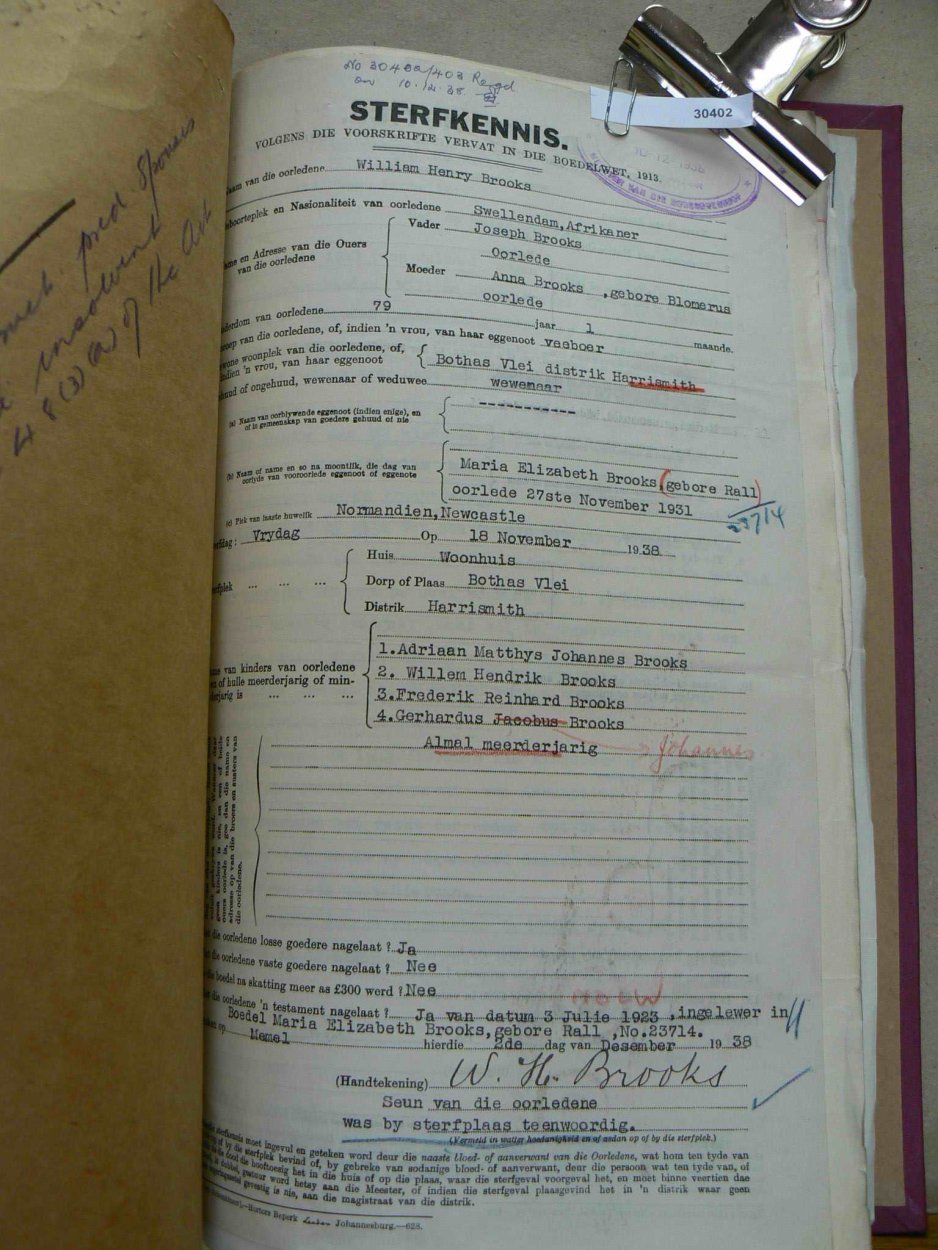 No 30402/403 Reqgd
on 10.12.38
30402
STERFKENNIS.
VOLGENS DIE VOORSKRIFTE VERVAT IN DIE BOEDELWET, 1913.
van die oorledene William Henry Brooks
en Nasionaliteit van oorledene Swellendam,Afrikaner
en Adresse van die Ouers van die oorledene Vader Joseph Brooks
Oorlede
Moeder Anna Brooks ,gebore Blomerus
oorlede
van oorledene 79 jaar 1 maande.
van die oorledene, of, indien 'n vrou, van haar eggenoot veeboer
woonplek van die oorledene, of, indien 'n vrou, van haar eggenoot Bothas Vlei distrik Harrismith
of ongehuud, wewenaar of weduwee wewenaar
(a) Naam van oorblywende eggenoot (indien enige), en of in gemeenskap van goedere gehuud of nie
(b) Naam of name en so na moontlik, die dag van oorlyde van vooroorlede eggenoot of eggenote
Maria Elizabeth Brooks,(gebore Rall)
oorlede 27ste November 1931
23714
(c) Plek van laaste huwelik Normandien,Newcastle
Vrydag Op 18 November 1938
Huis Woonhuis
Dorp of Plaas Bothas Vlei
Distrik Harrismith
van kinders van oorledene
of hulle meerderjarig of min-
is
1.Adriaan Matthys Johannes Brooks
2. Willem Hendrik Brooks
3.Frederik Reinhard Brooks
4.Gerhardus Jacobus Brooks
Johannes
Almal meerderjarig
die oorledene losse goedere nagelaat ? Ja
die oorledene vaste goedere nagelaat ? Nee
boedel na skatting meer as £300 werd ? Nee
die oorledene 'n testament nagelaat ? Ja van datum 3 Julie 1923 ,ingelewer in
Boedel Maria Elizabeth Brooks,gebore Rall ,No.23714.
op Memel hierdie 2de dag van Desember 1938
(Handtekening) W. H. Brooks
Seun van die oorledene
was by sterfplaas teenwoordig.
(Vermeld in watter hoedanigheid en of sedan op of by die sterfplek.)
sterfkennis moet ingevul en geteken word deur die naaste bloed- of aanverwant van die Oorledene, wat hom ten tyde van
of by die sterfplek bevind of, by gebreke van sodanige bloed- of aanverwant, deur die persoon wat ten tyde van, of
die dood die hooftoesig het in die huis of op die plaas, waar die sterfgeval voorgeval het, en moet binne veertien dae
gestuur word hetsy aan die Meester, of indien die sterfgeval plaasgevind het in 'n distrik waar geen
gevestig is nie, aan die magistraat van die distrik.
Hortors Beperk Johannesburg.—628.